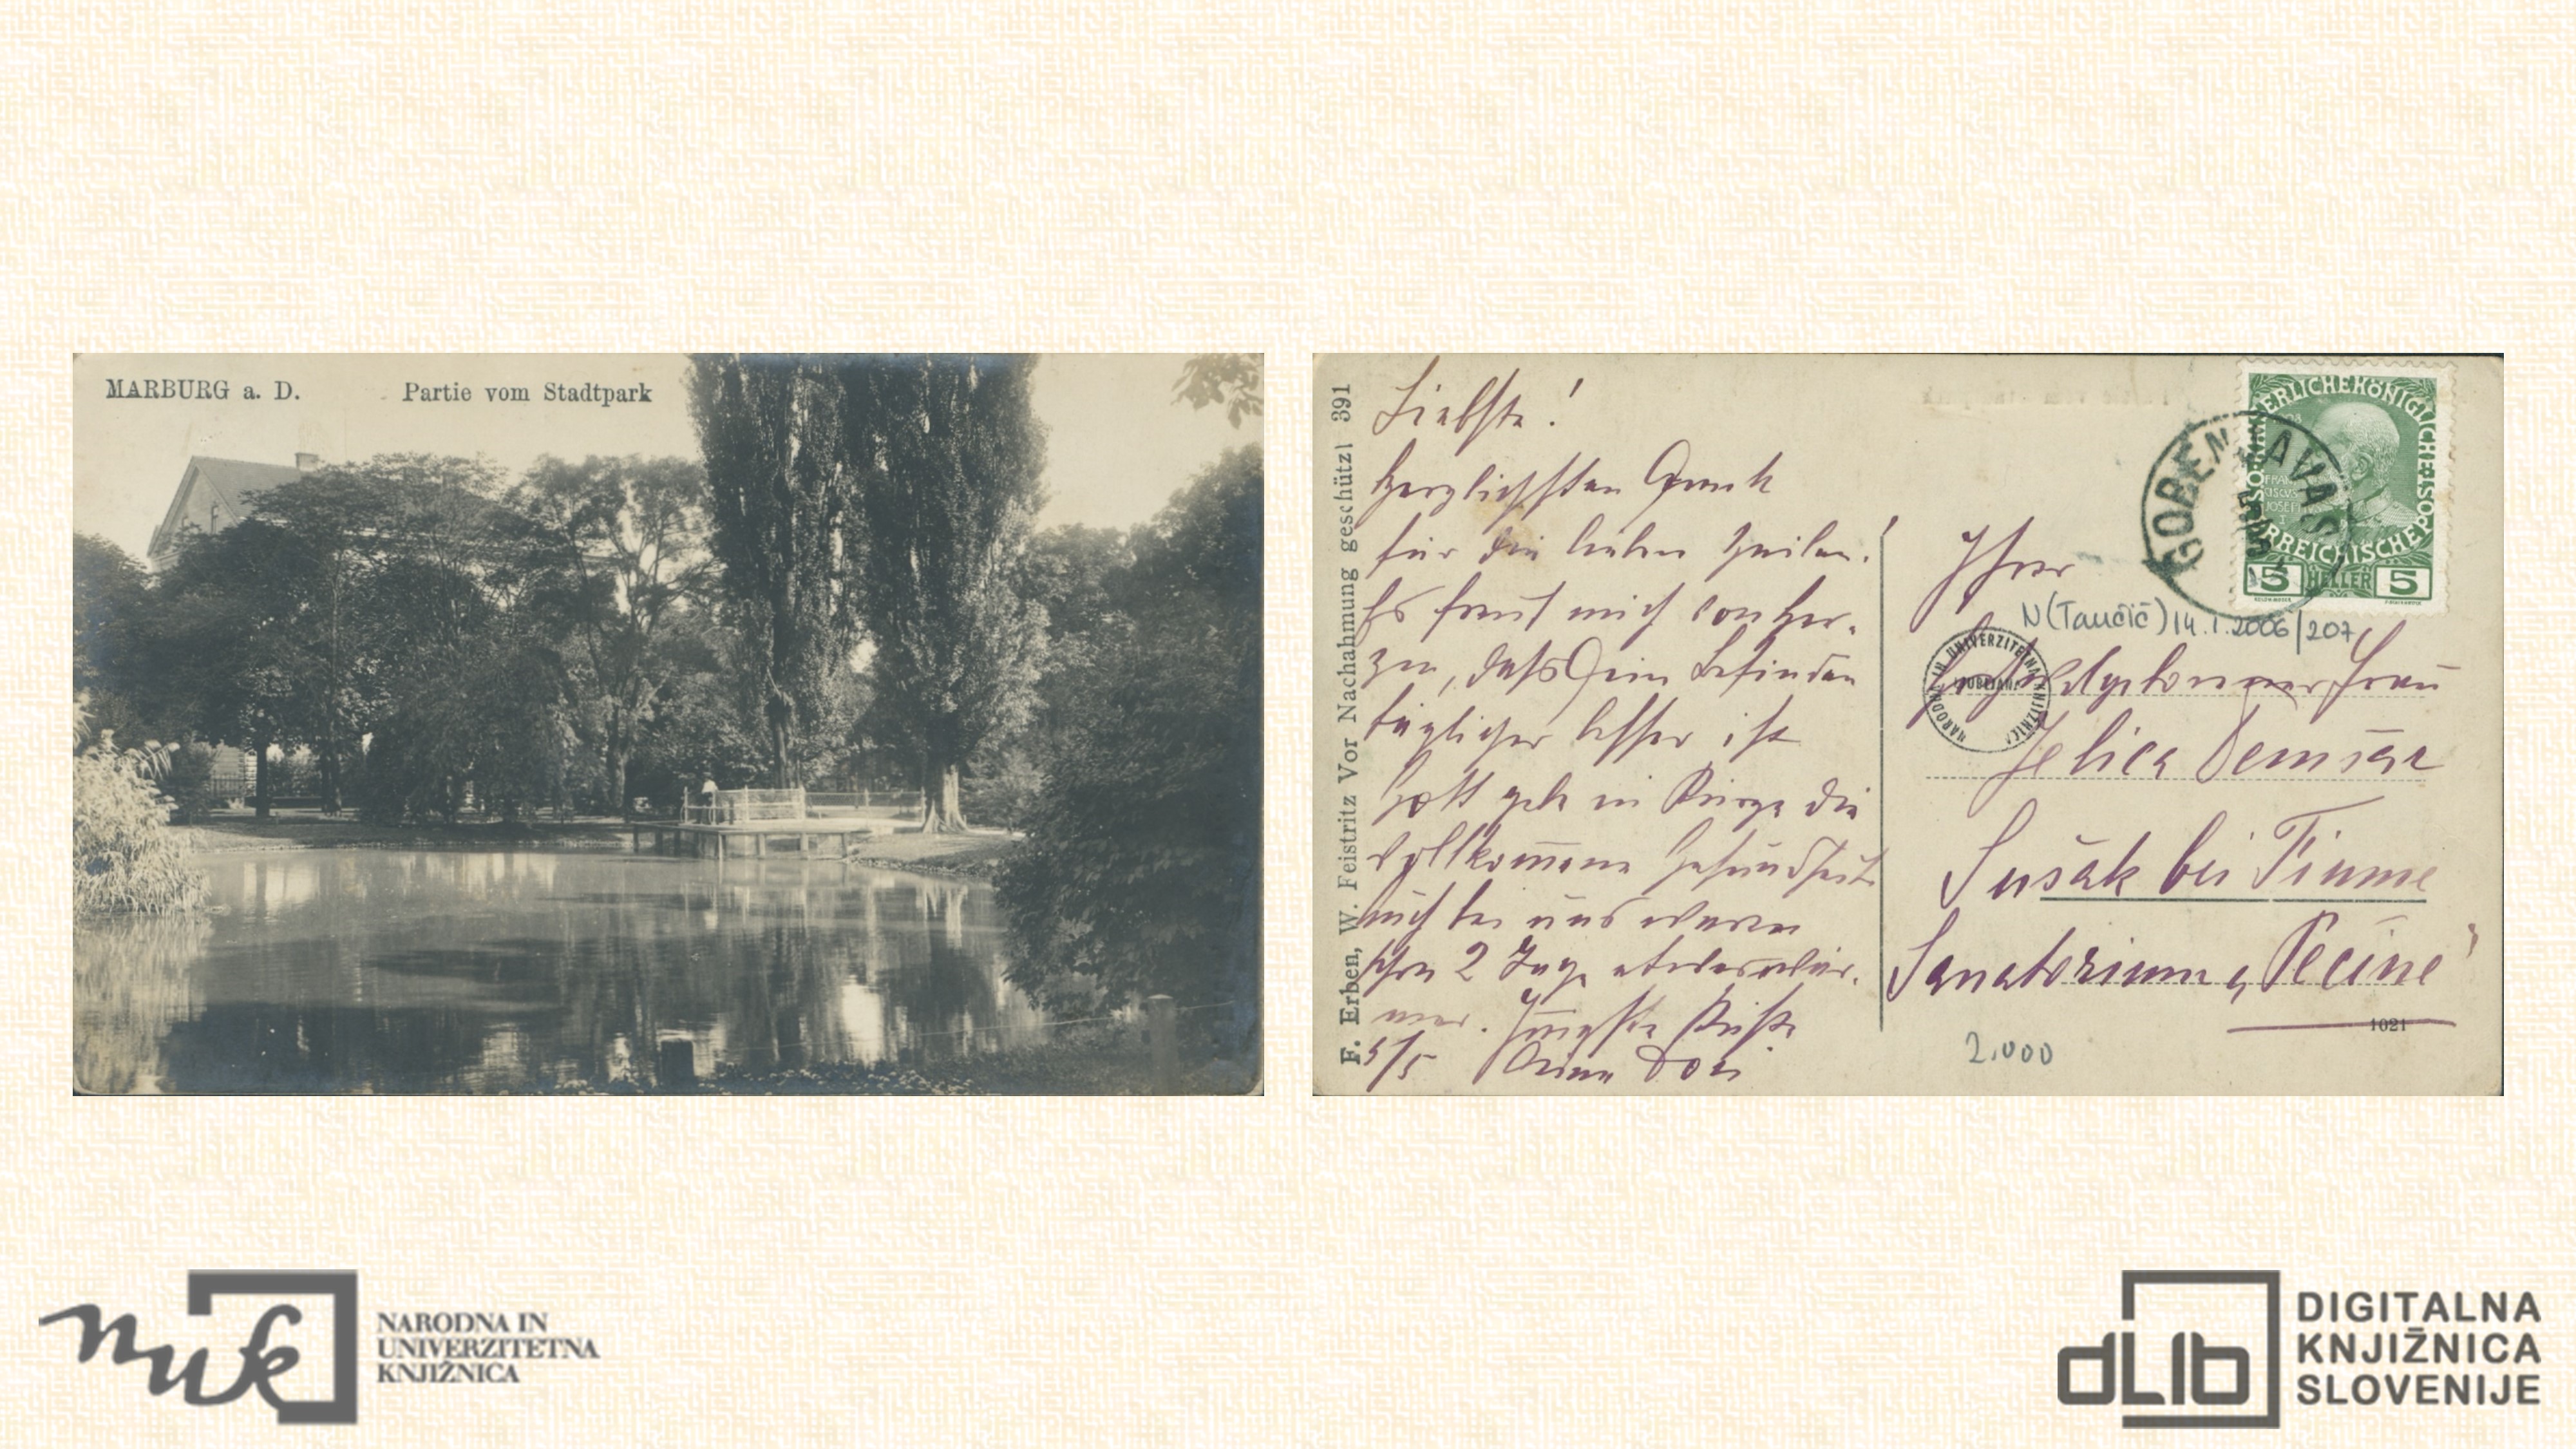 MARBURG a. D. Partie vom Stadtpark
F. Erben, W. Feistritz Vor Nachahmung geschützt 391
Liebste!
Herzlichsten Dank
für die lieben Zeilen!
Es freut mich von Her-
zen, daß Dein Befinden
täglicher besser ist
Gott gebe in Kürze die
vollkommene Gesundheit
auch bei uns waren
schon 2 Tage etwas wär-
mer. Innigste Küsse
5/5 Deine Dori
KAISERLICHE KÖNIGLICHE
ÖSTERREICHISCHE POST
5 HELLER 5
Ihrer
N(Taučič) 14.1.2006/207
NARODNA IN UNIVERZITETNA KNJIŽNICA
LJUBLJANA
Hochwohlgeboren Frau
Jelica Demšar
Sušak bei Fiume
Sanatorium „Pećine"
1021
2.000
nuk
NARODNA IN
UNIVERZITETNA
KNJIŽNICA
dLib
DIGITALNA
KNJIŽNICA
SLOVENIJE